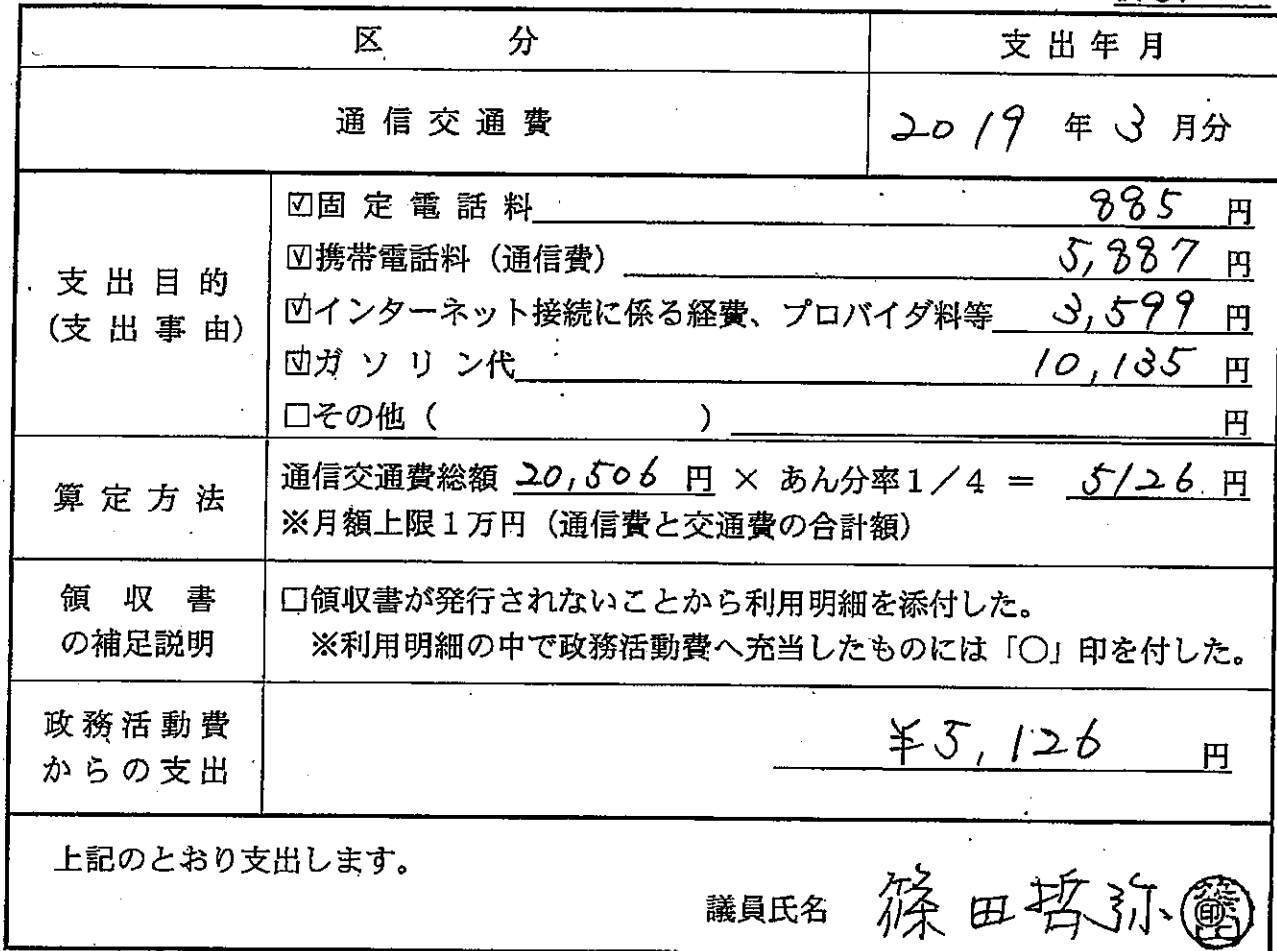 区 分 支出年月
通信交通費 2019 年 3 月分
支出目的
(支出事由)
☑固定電話料 885 円
☑携帯電話料(通信費) 5,887 円
☑インターネット接続に係る経費、プロバイダ料等 3,599 円
☑ガソリン代 10,135 円
□その他( ) 円
算定方法
通信交通費総額 20,506 円 × あん分率1/4 = 5126 円
※月額上限1万円(通信費と交通費の合計額)
領収書
の補足説明
□領収書が発行されないことから利用明細を添付した。
※利用明細の中で政務活動費へ充当したものには「○」印を付した。
政務活動費
からの支出
¥5,126 円
上記のとおり支出します。
議員氏名 篠田哲弥